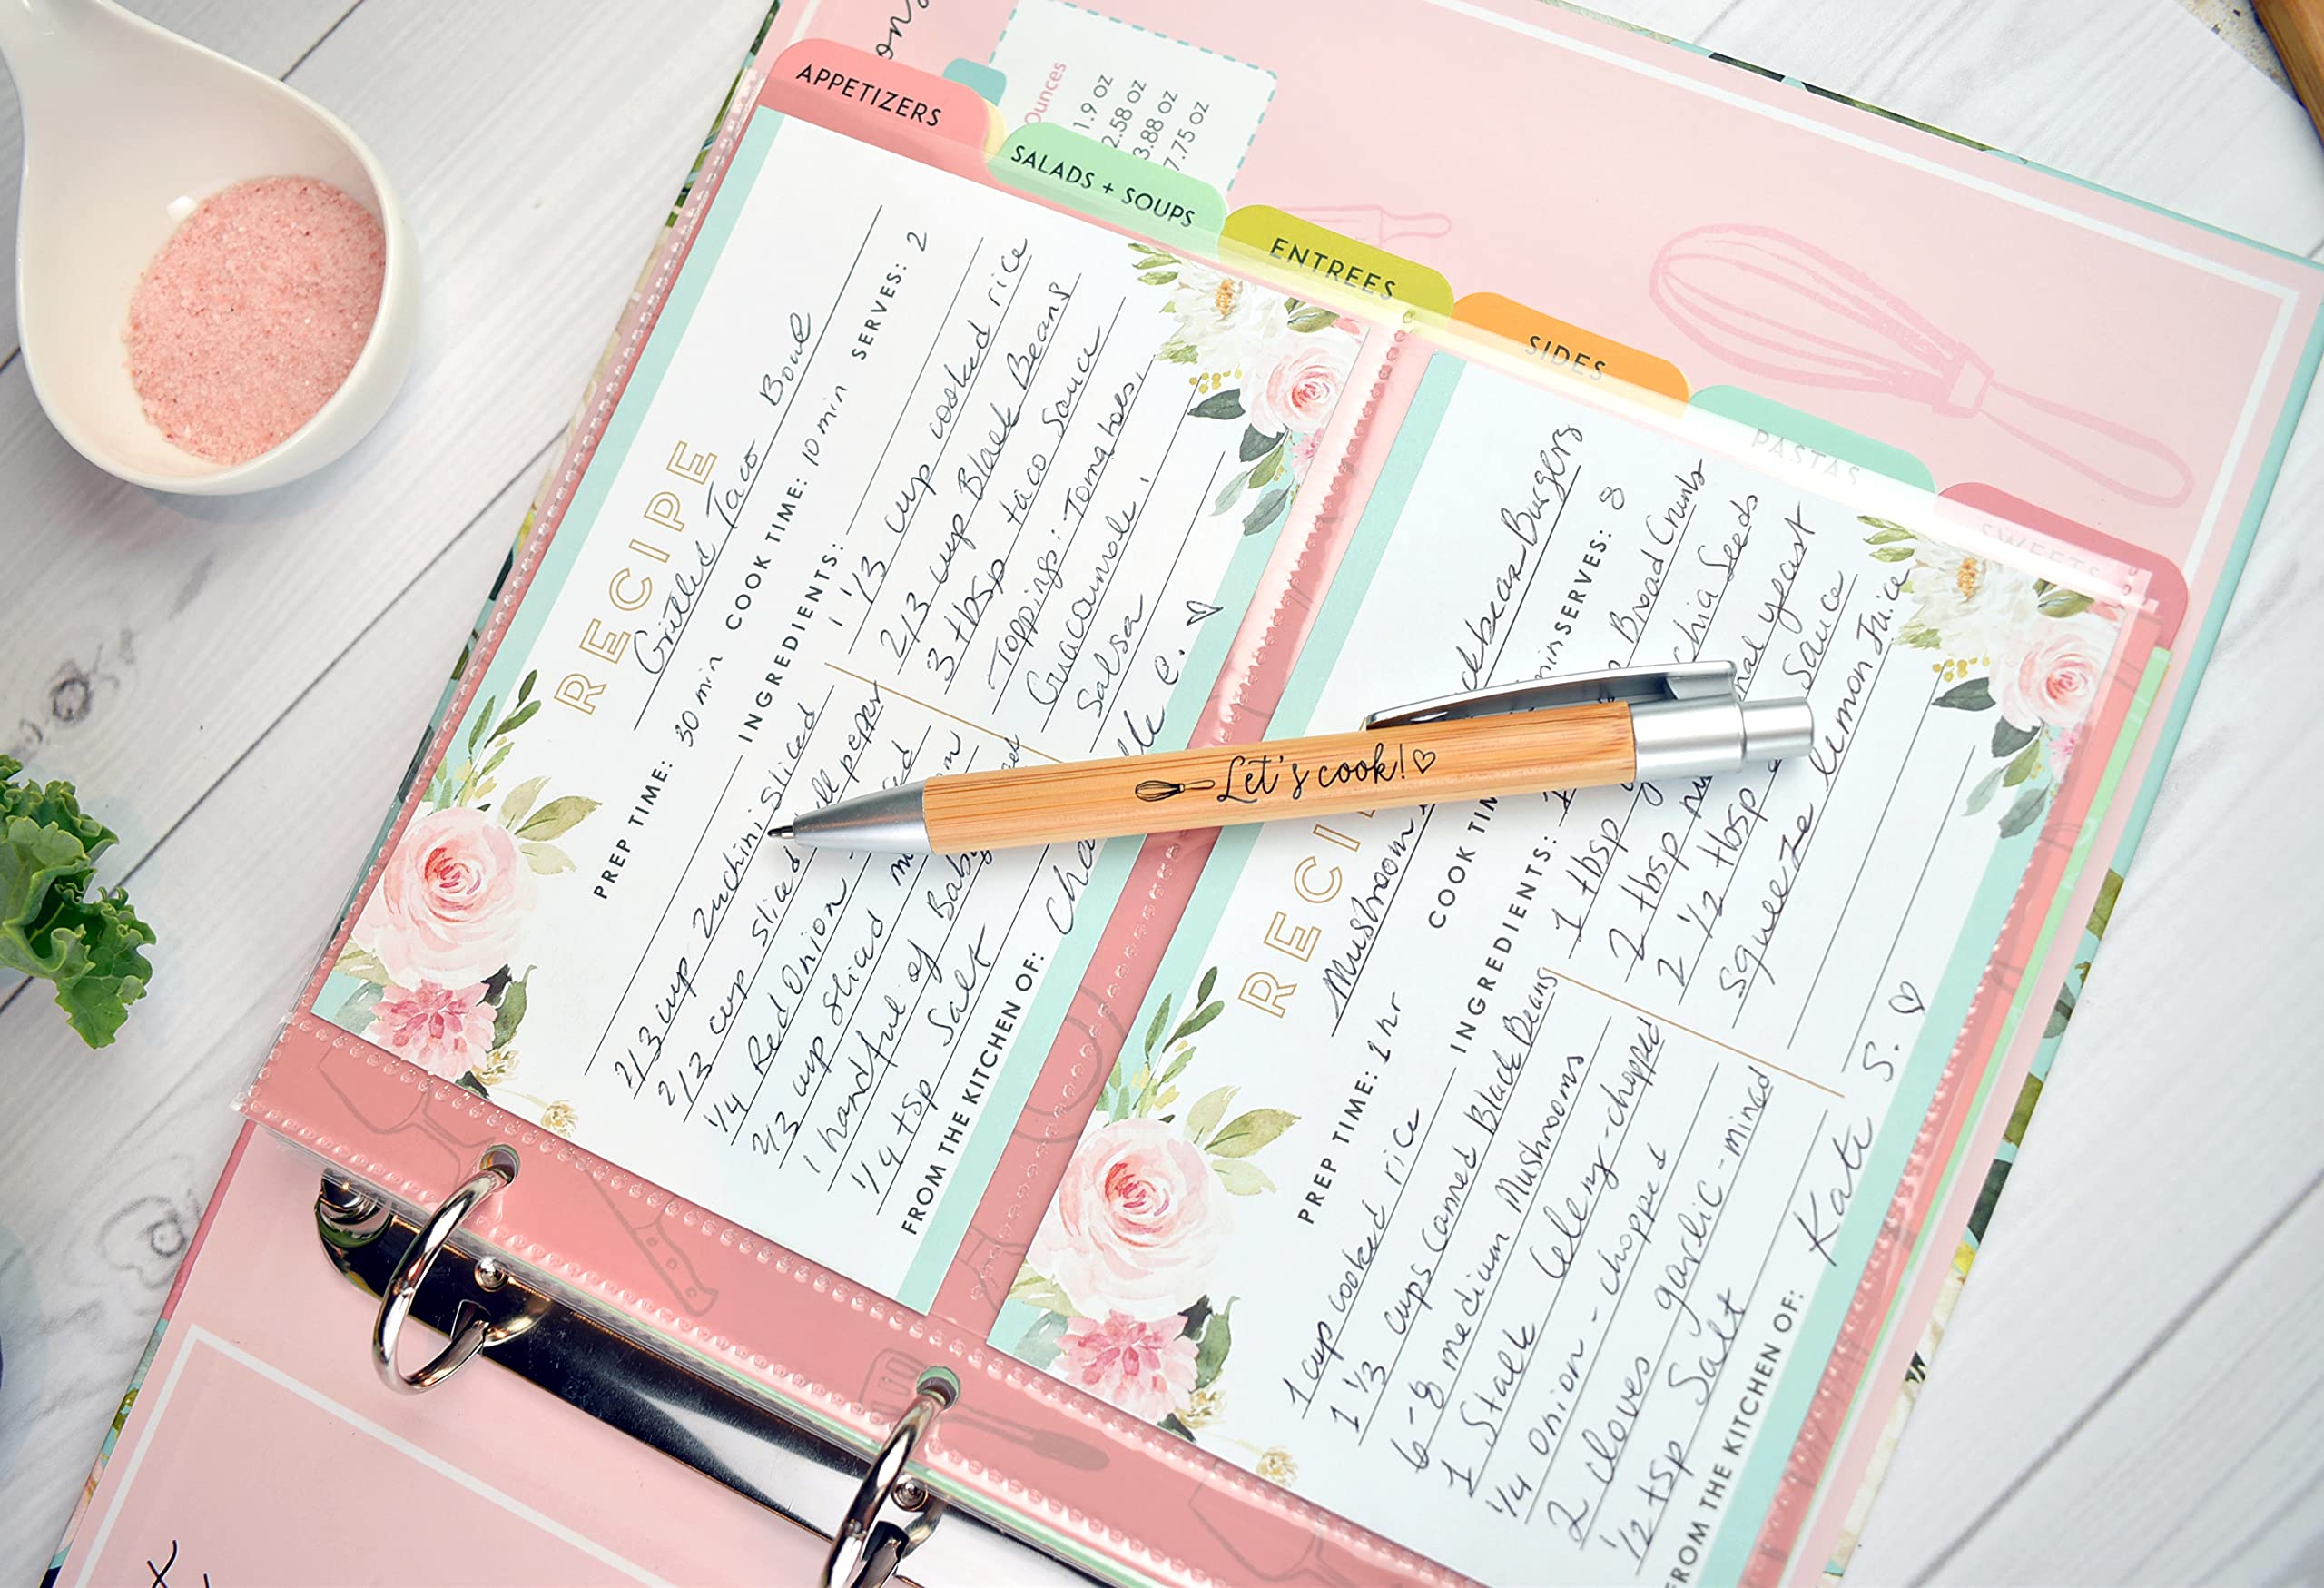 ons
Ounces
1.9 oz
2.58 oz
3.88 oz
7.75 oz
APPETIZERS
SALADS + SOUPS
ENTREES
SIDES
PASTAS
SWEETS
RECIPE
Grilled Taco Bowl
PREP TIME: 30 min COOK TIME: 10 min SERVES: 2
INGREDIENTS:
2/3 cup Zuchini, Sliced
2/3 cup sliced ll pepper
1/4 Red Onion - ed
2/3 cup sliced m m
1 handful of Bab
1/4 tsp Salt
1 1/3 cup cooked rice
2/3 cup Black Beans
3 tbsp taco Sauce
Toppings: Tomatoes,
Guacamole,
Salsa
FROM THE KITCHEN OF: Cha le C.
Let's cook!
RECI
Mushroom ckbean Burgers
PREP TIME: 1 hr COOK TIM min SERVES: 8
INGREDIENTS:
1 cup cooked rice
1 1/3 cups Canned Black Beans
6-8 medium Mushrooms
1 Stalk Celery-chopped
1/4 onion - chopped
2 cloves garlic-minced
1/2 tsp Salt
1 Bread Crumbs
1 tbsp g chia Seeds
2 tbsp nu nal yeast
2 1/2 tbsp Sauce
squeeze lemon Juice
FROM THE KITCHEN OF: Kate S.